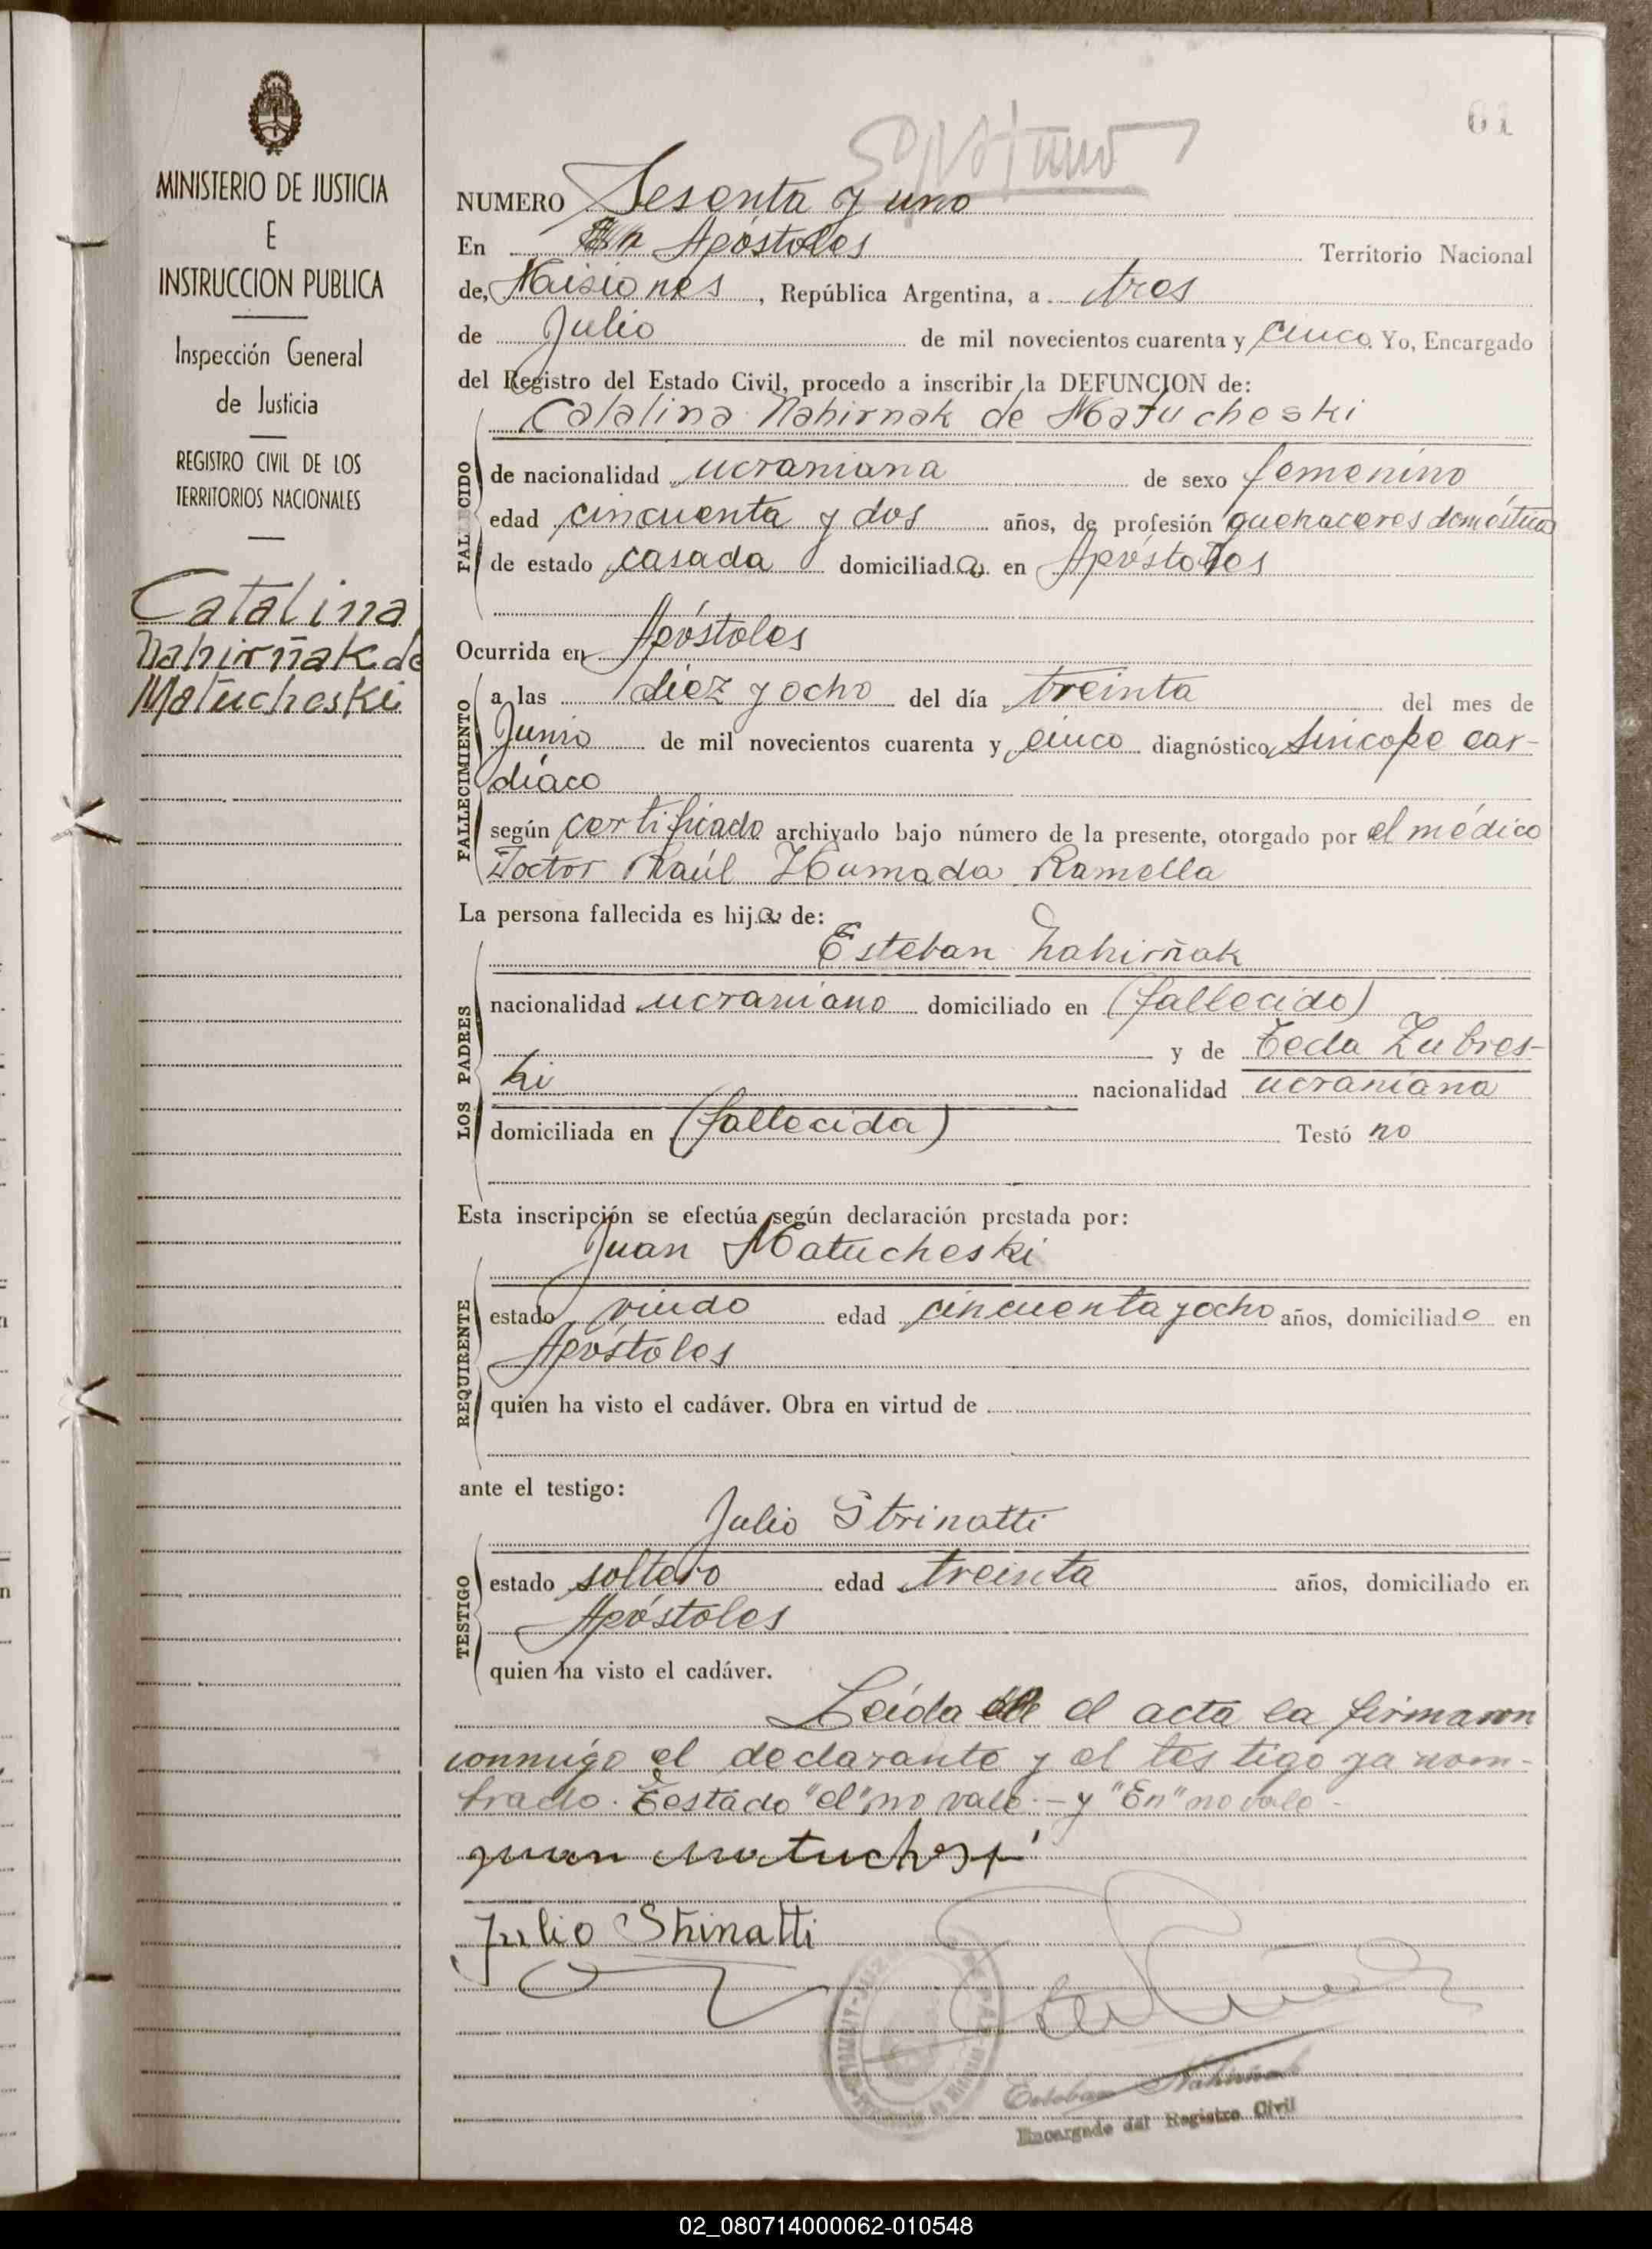 61
MINISTERIO DE JUSTICIA
E
INSTRUCCION PUBLICA
Inspección General
de Justicia
REGISTRO CIVIL DE LOS
TERRITORIOS NACIONALES
Catalina
Nahirñak de
Matucheski
NUMERO Sesenta y uno
En En Apóstoles Territorio Nacional
de, Misiones, República Argentina, a tres
de Julio de mil novecientos cuarenta y cinco Yo, Encargado
del Registro del Estado Civil, procedo a inscribir la DEFUNCION de:
Catalina Nahirnak de Matucheski
FALLECIDO
de nacionalidad ucraniana de sexo femenino
edad cincuenta y dos años, de profesión quehaceres domésticos
de estado casada domiciliada en Apóstoles
Ocurrida en Apóstoles
FALLECIMIENTO
a las diez y ocho del día treinta del mes de
Junio de mil novecientos cuarenta y cinco diagnóstico sincope car-
díaco
según certificado archivado bajo número de la presente, otorgado por el médico
Doctor Raúl Humada Ramella
La persona fallecida es hija de:
Esteban Nahirñak
LOS PADRES
nacionalidad ucraniano domiciliado en (fallecido)
y de Tecla Zubres-
ki nacionalidad ucraniana
domiciliada en (fallecida) Testó no
Esta inscripción se efectúa según declaración prestada por:
Juan Matucheski
REQUIRENTE
estado viudo edad cincuenta y ocho años, domiciliado en
Apóstoles
quien ha visto el cadáver. Obra en virtud de
ante el testigo:
Julio Strinatti
TESTIGO
estado soltero edad treinta años, domiciliado en
Apóstoles
quien ha visto el cadáver.
Leída el acta la firmaron
conmigo el declarante y el testigo ya nom-
brado. Testado "el" no vale.- y "En" no vale-
Juan Matucheski
Julio Strinatti
Esteban Nahirñak
Encargado del Registro Civil
02_080714000062-010548